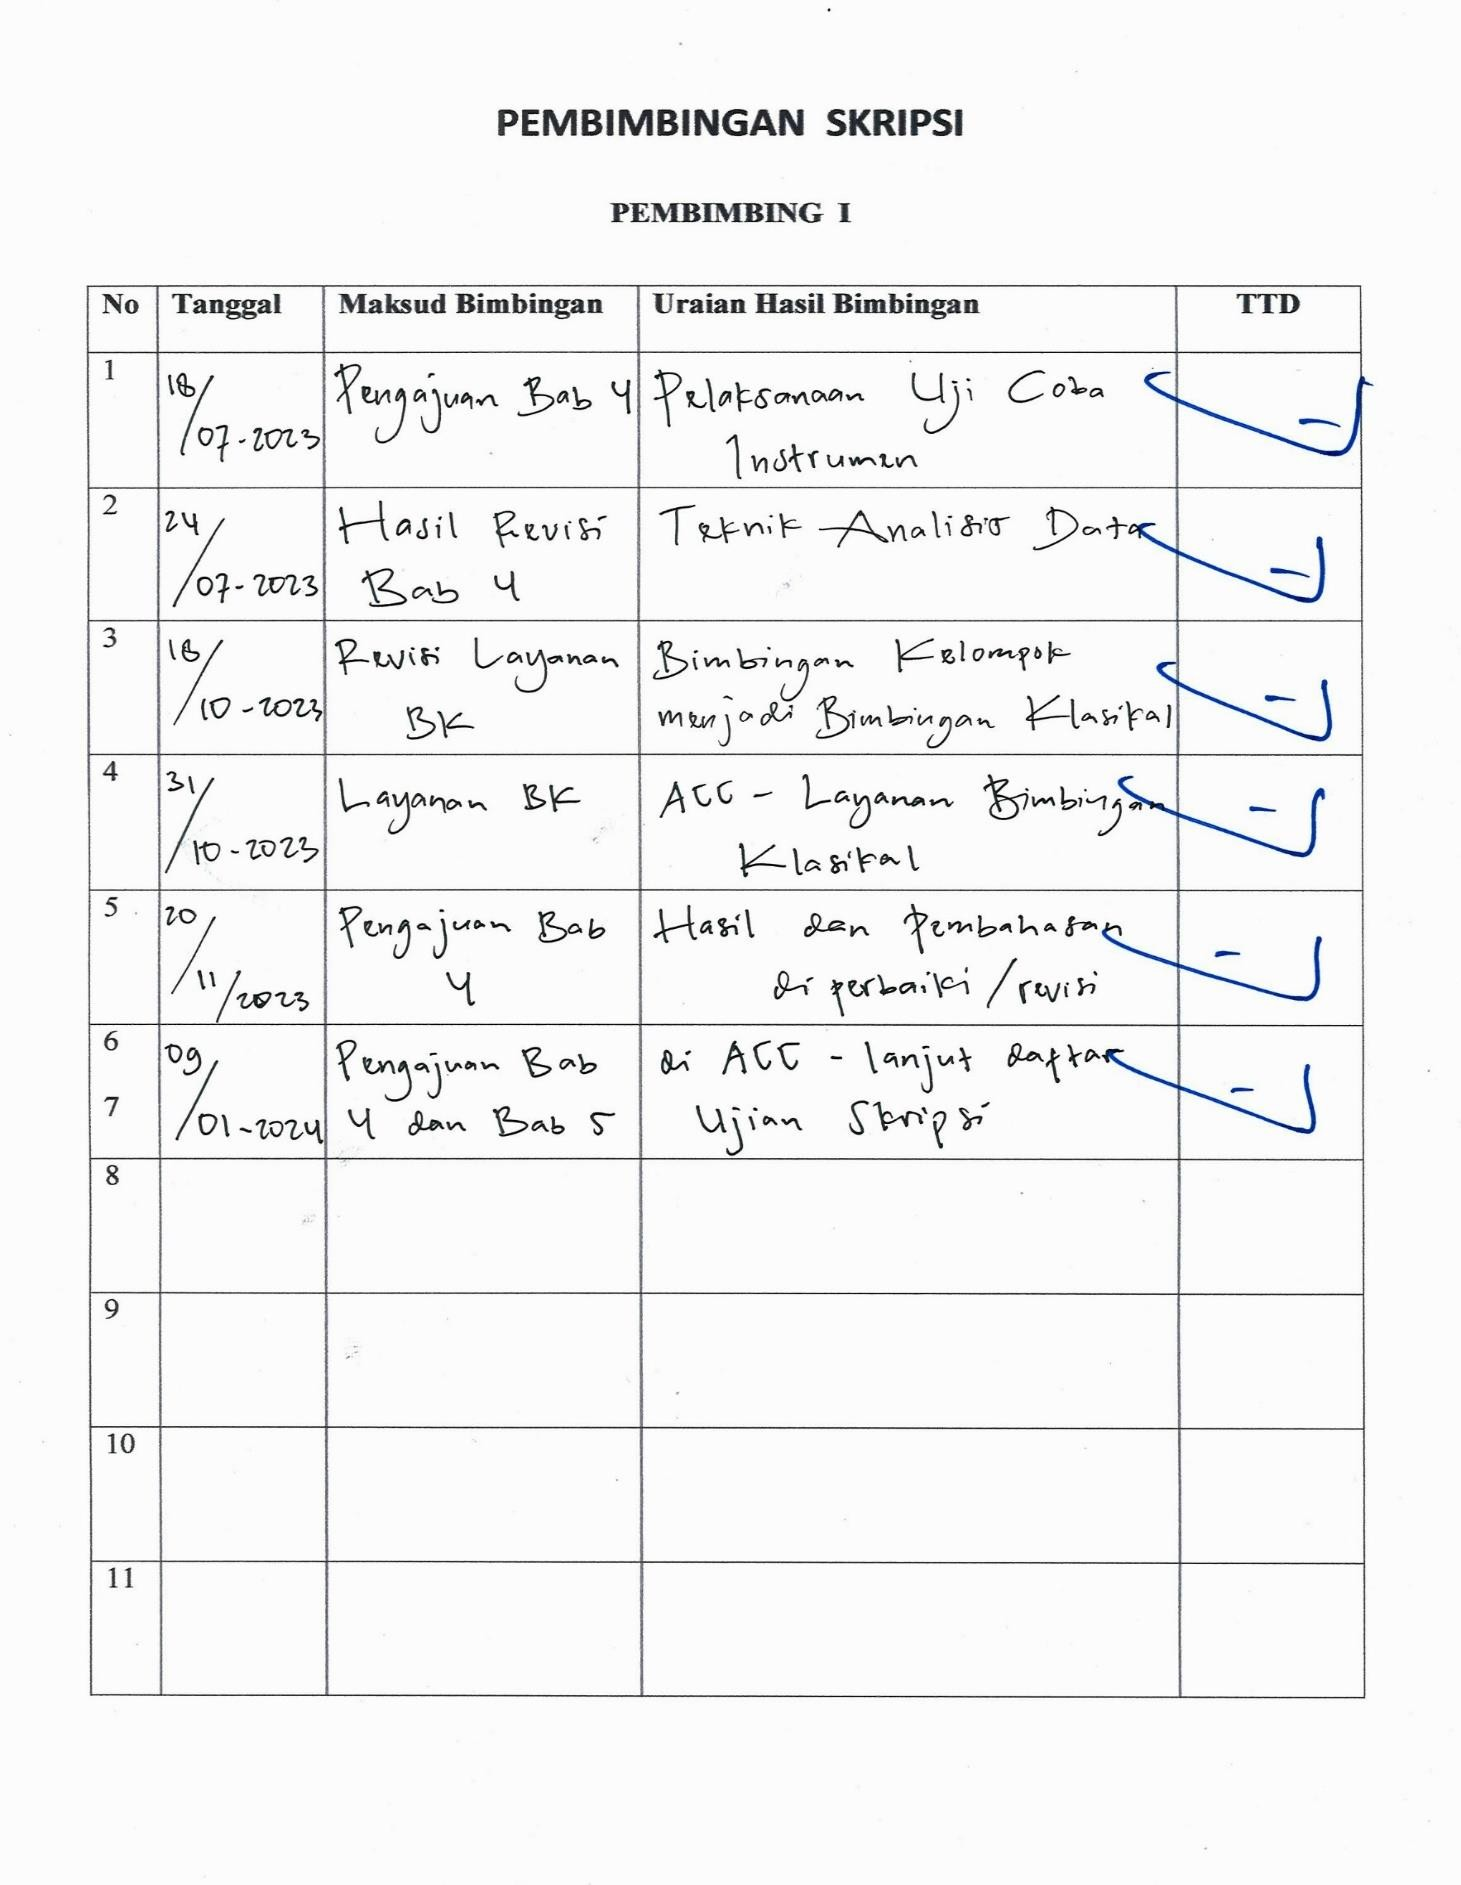 PEMBIMBINGAN SKRIPSI
PEMBIMBING I
No Tanggal Maksud Bimbingan Uraian Hasil Bimbingan TTD
1 18/07-2023 Pengajuan Bab 4 Pelaksanaan Uji Coba
Instrumen
2 24/07-2023 Hasil Revisi Teknik Analisis Data
Bab 4
3 18/10-2023 Revisi Layanan Bimbingan Kelompok
BK menjadi Bimbingan Klasikal
4 31/10-2023 Layanan BK ACC - Layanan Bimbingan
Klasikal
5 20/11/2023 Pengajuan Bab Hasil dan Pembahasan
4 di perbaiki/revisi
6 09/01-2024 Pengajuan Bab di ACC - lanjut daftar
7 4 dan Bab 5 Ujian Skripsi
8
9
10
11